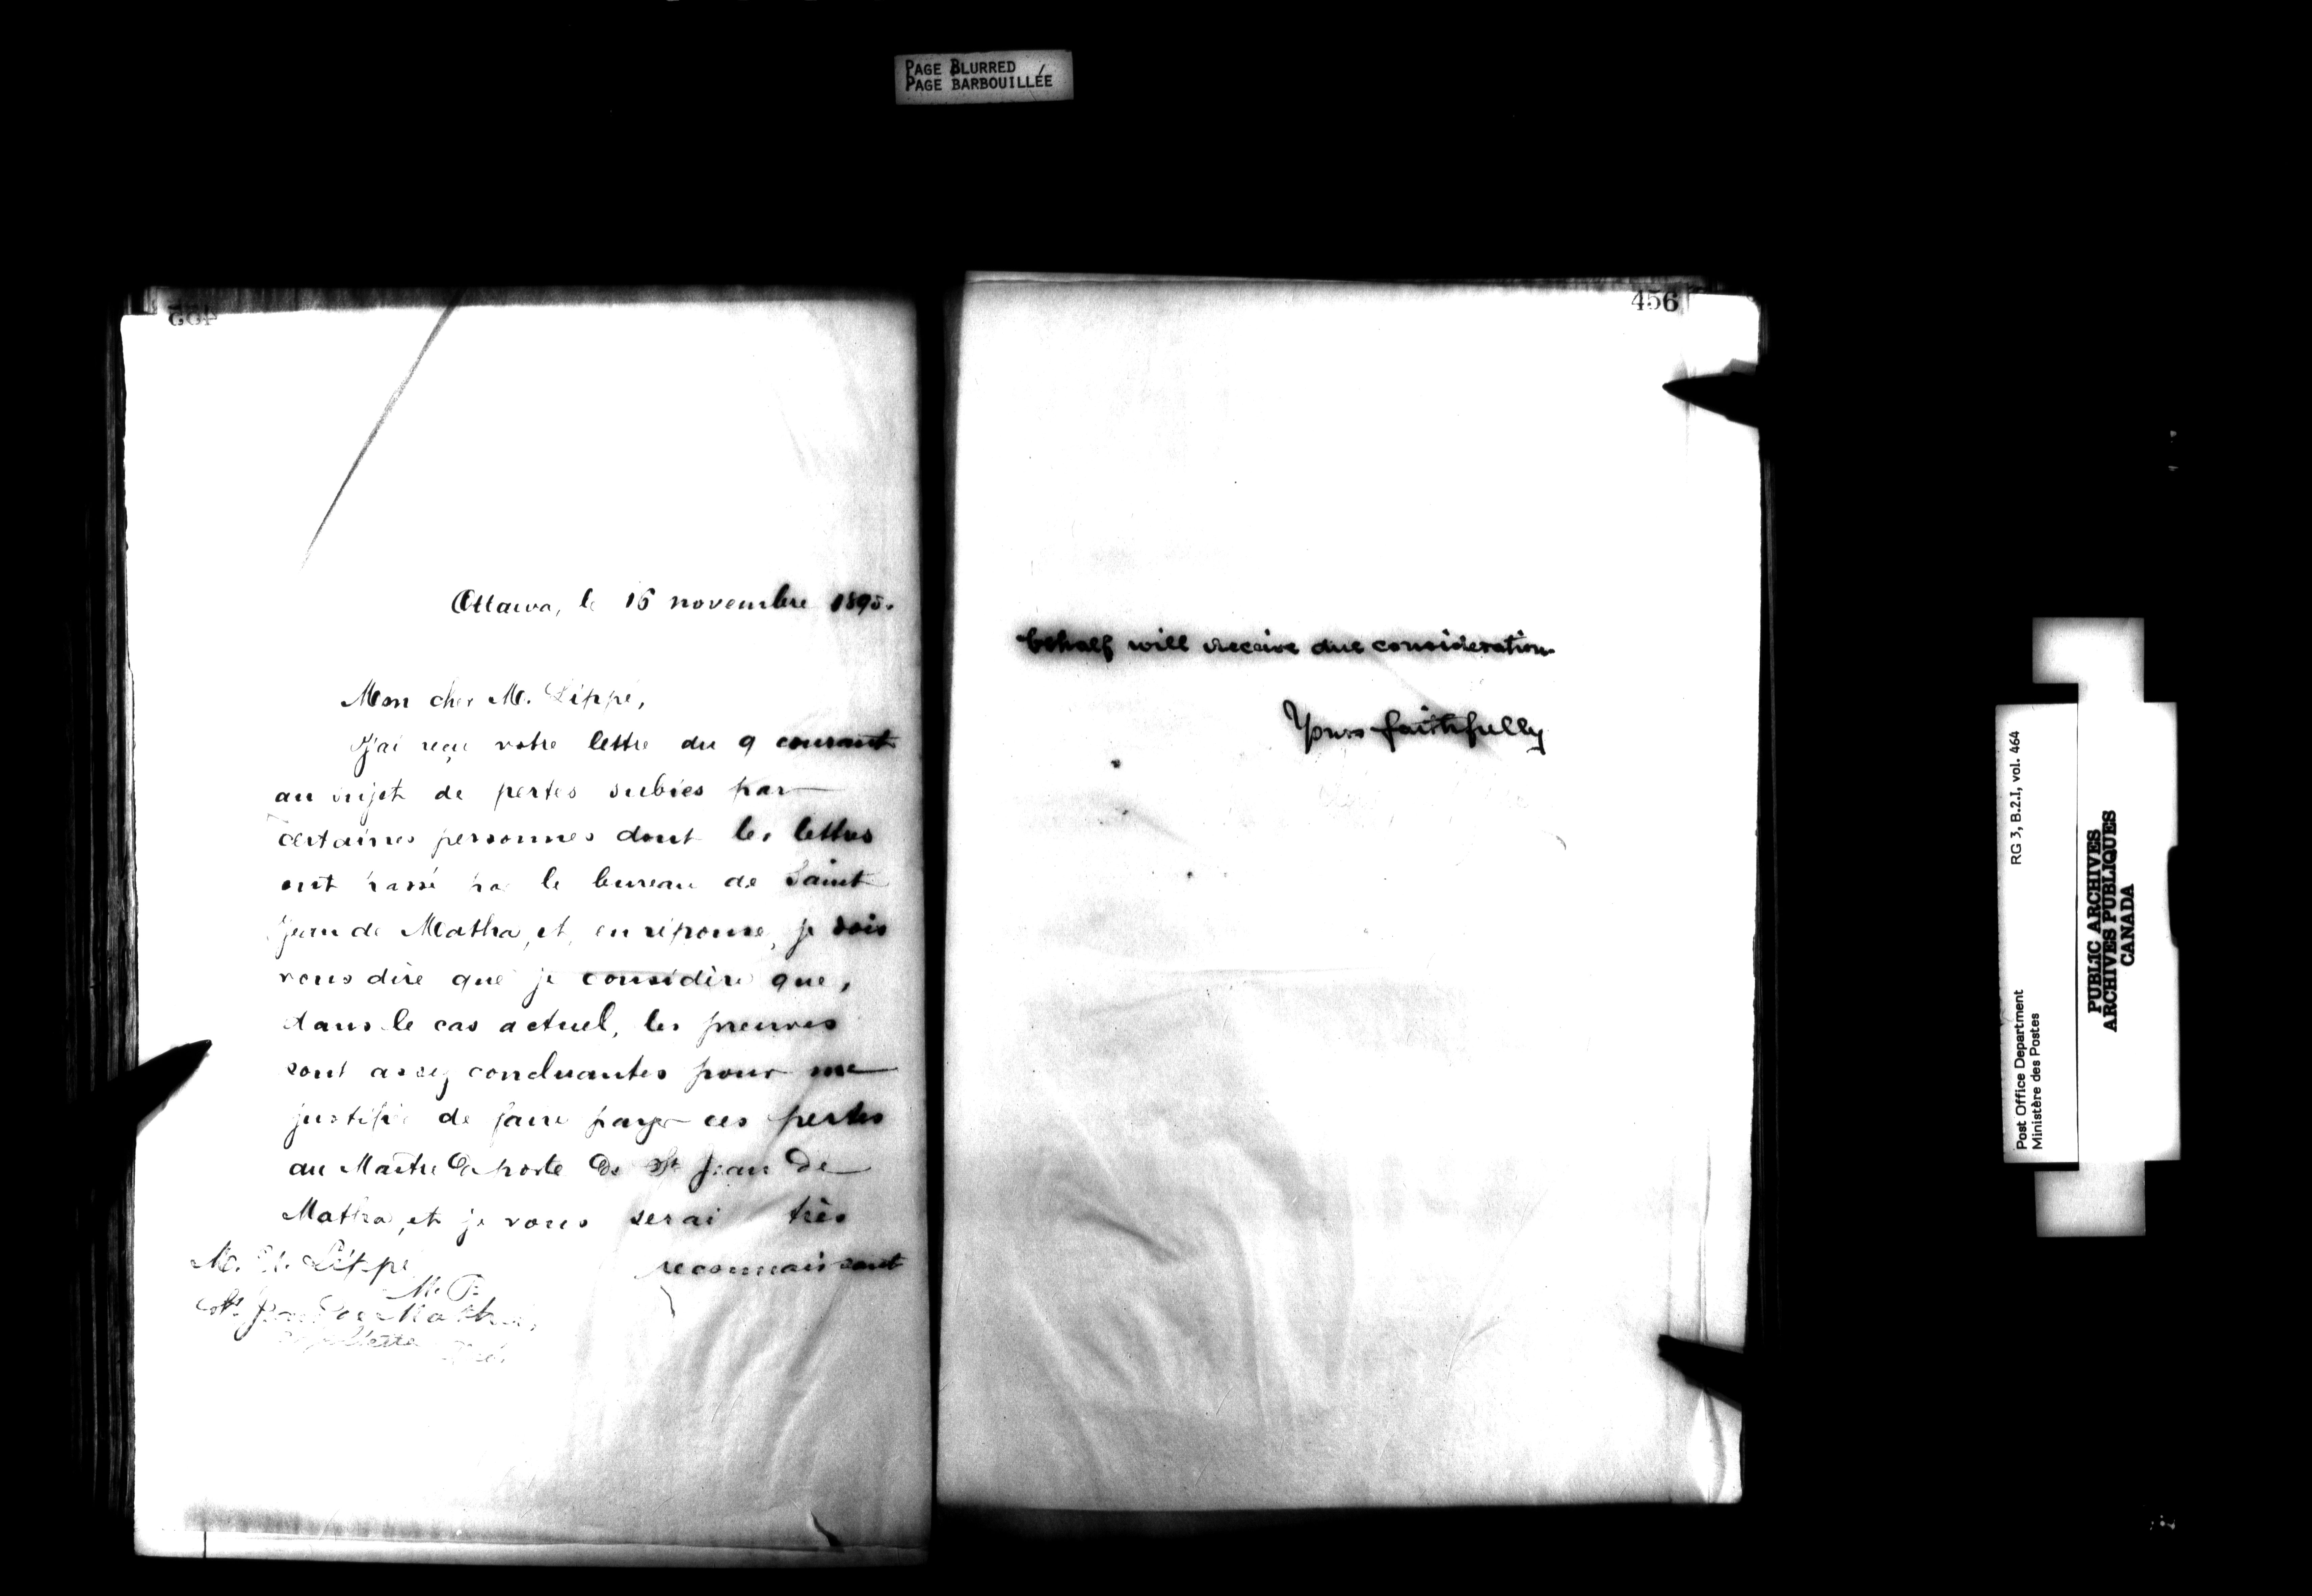 PAGE BLURRED
PAGE BARBOUILLÉE
455
Ottawa, le 16 novembre 1895.
Mon cher M. Lippé,
J'ai reçu votre lettre du 9 courant
au sujet de pertes subies par
certaines personnes dont les lettres
ont passé par le bureau de Saint
Jean de Matha, et, en réponse, je dois
vous dire que je considère que,
dans le cas actuel, les preuves
sont assez concluantes pour me
justifier de faire payer ces pertes
au Maître de poste de St Jean de
Matha, et je vous serai très
reconnaissant
M. Lippé
M. P.
St. Jean de Matha,
Joliette
456
behalf will receive due consideration
Yours faithfully
Post Office Department RG 3, B.2.I, vol. 464
Ministère des Postes
PUBLIC ARCHIVES
ARCHIVES PUBLIQUES
CANADA